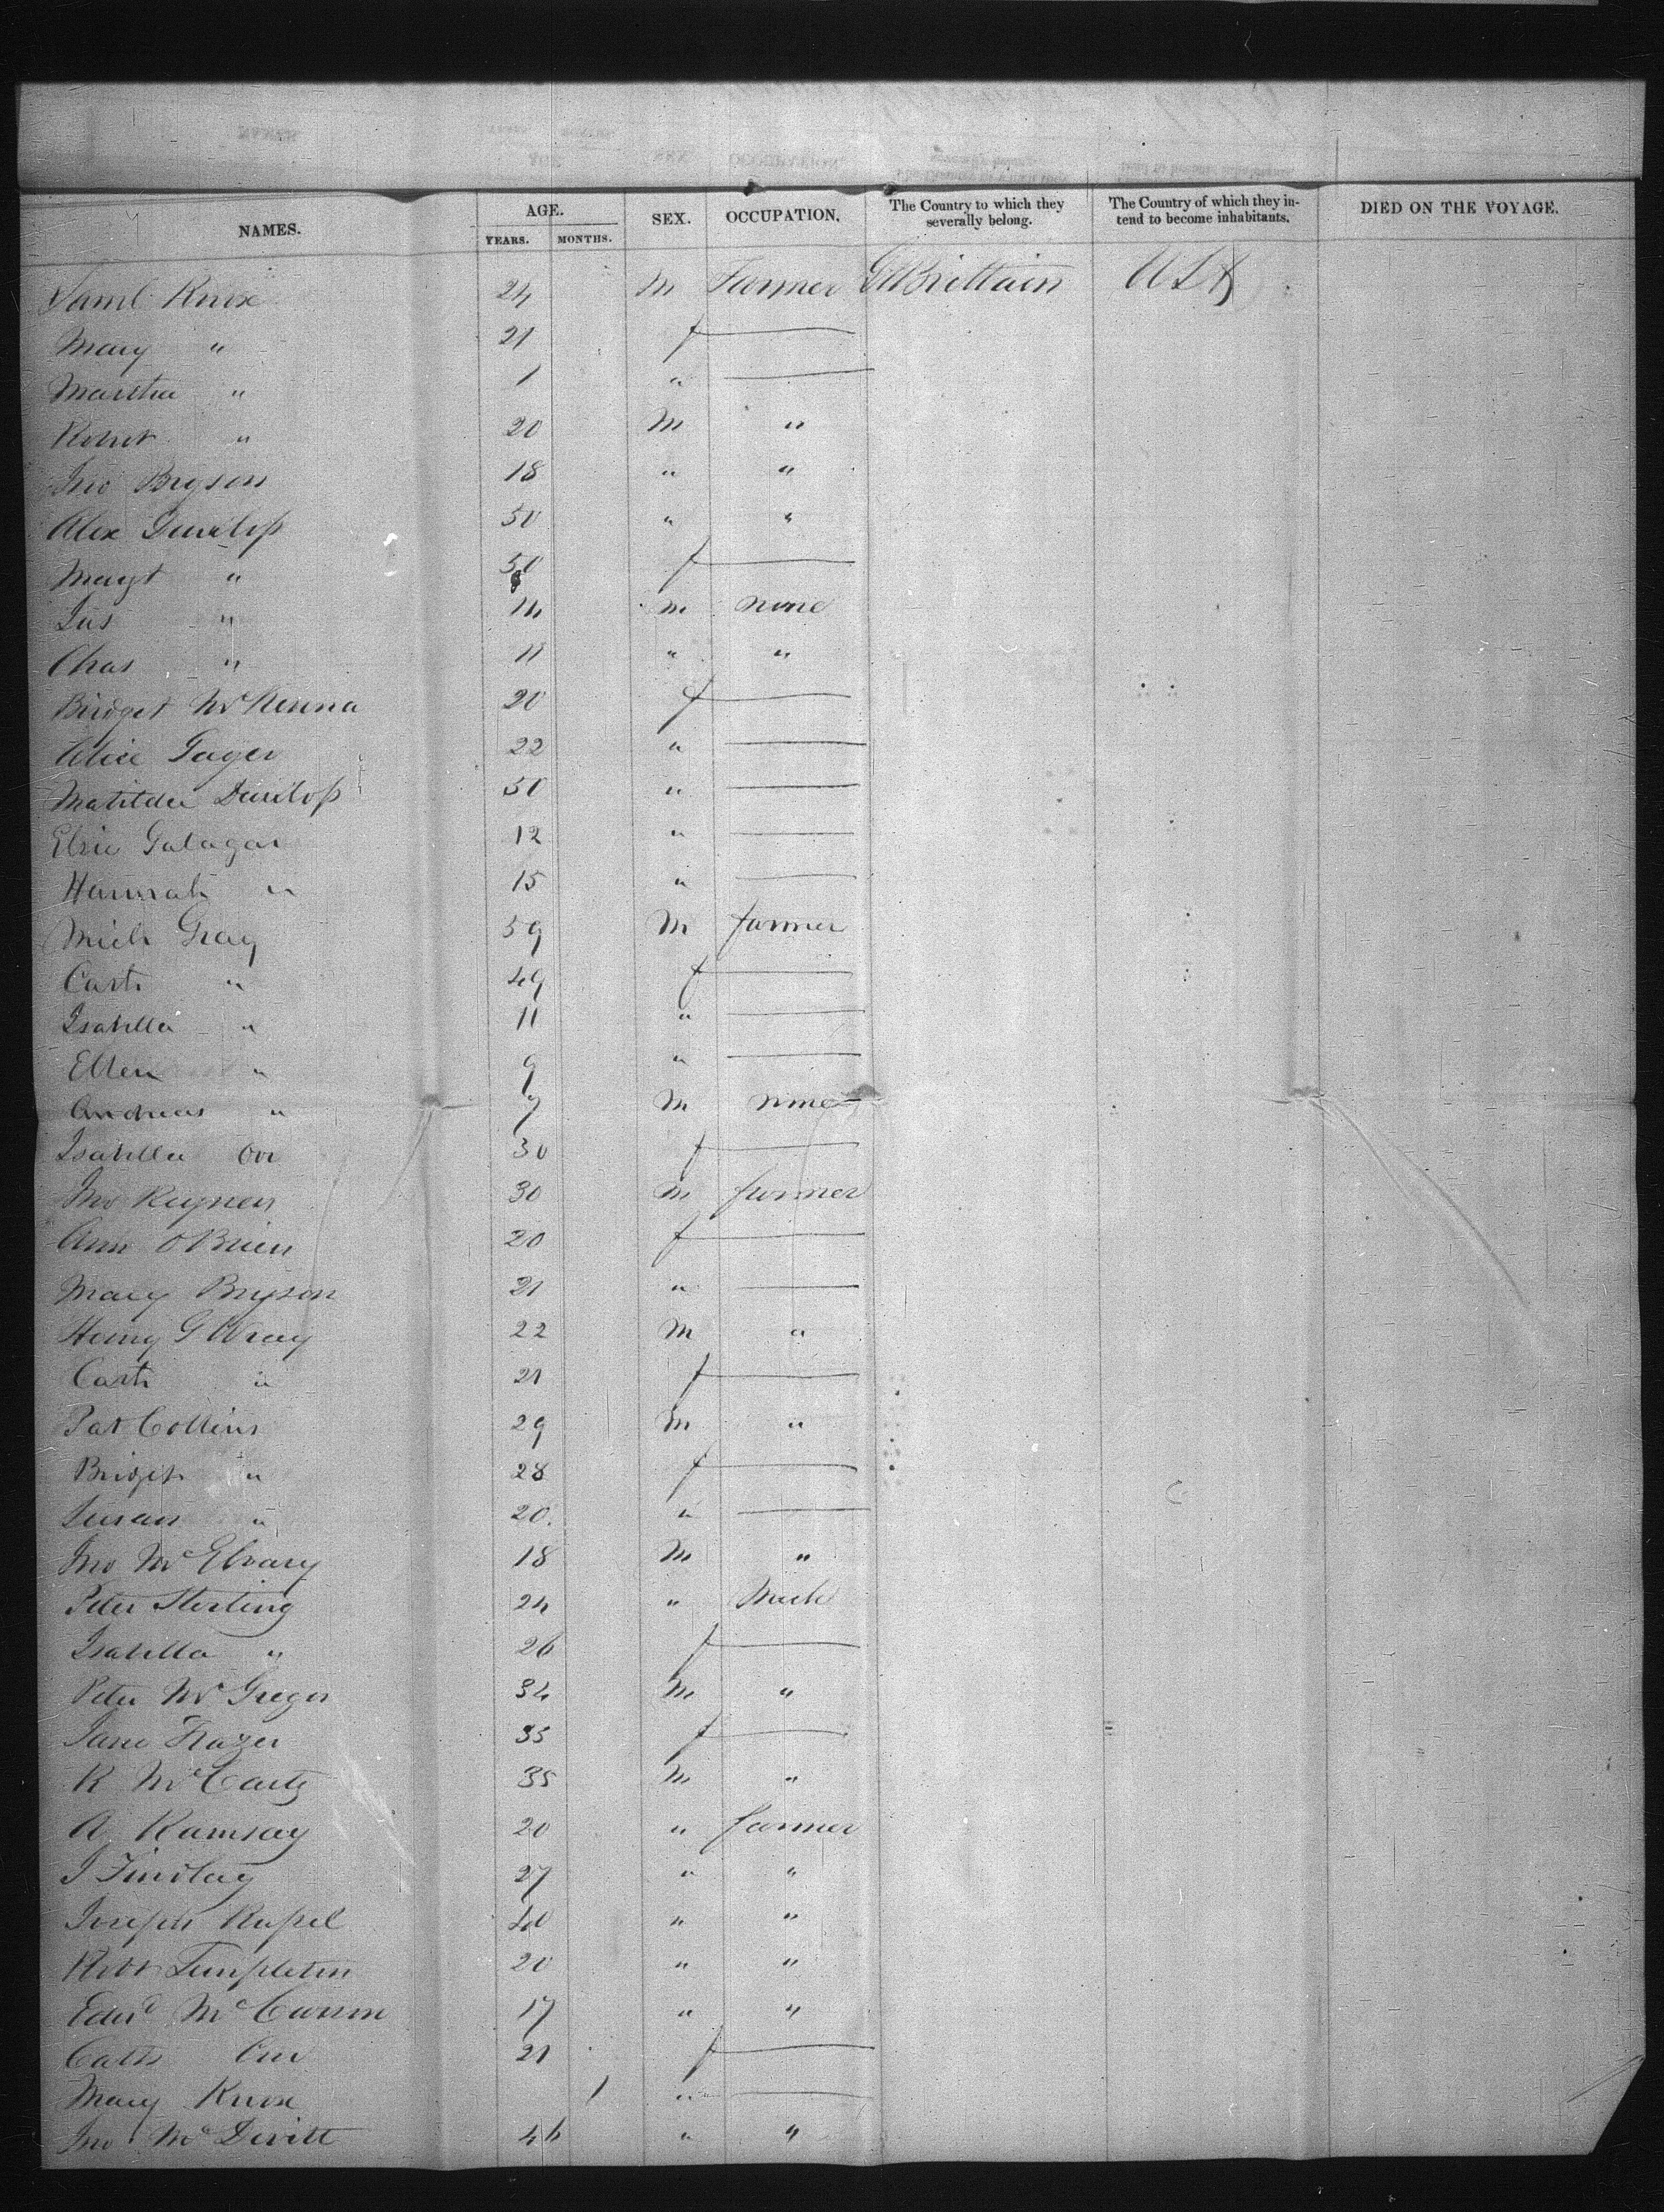 NAMES. AGE. YEARS. MONTHS. SEX. OCCUPATION. The Country to which they severally belong. The Country of which they intend to become inhabitants. DIED ON THE VOYAGE.
Saml Knox 24 M Farmer Gt Brittain USA
Mary " 21 f —
Martha " 1 " —
Robert " 20 M "
Jno Bryson 18 " "
Alex Dunlop 50 " "
Margt " 50 f —
Jas " 14 m none
Chas " 11 " "
Bridget McKenna 20 f —
Alice 22 " —
Matilda Dunlop 50 " —
Galagar 12 " —
Hannah " 15 " —
Mich Gray 59 M farmer
Cath " 49 f —
Isabella " 11 " —
Ellen " 9 " —
Andreas " 7 M none
Isabella Orr 30 f —
Jno 30 M farmer
Ann O'Brien 20 f —
Mary Bryson 21 " —
Henry G Wray 22 M "
Cath " 21 f —
Pat Collins 29 M "
Bridget " 28 f —
Susan " 20 " —
Jno 18 M "
Peter Sterling 24 " Mech
Isabella " 26 f —
Peter McGregor 34 M "
Jane Frazer 35 f —
R McCarty 35 M "
A Ramsay 20 " farmer
J Findlay 27 " "
Joseph 40 " "
Robt Templeton 20 " "
Edwd 17 " "
Cath Orr 21 f —
Mary Knox 1 " —
Jno McDevitt 46 " "